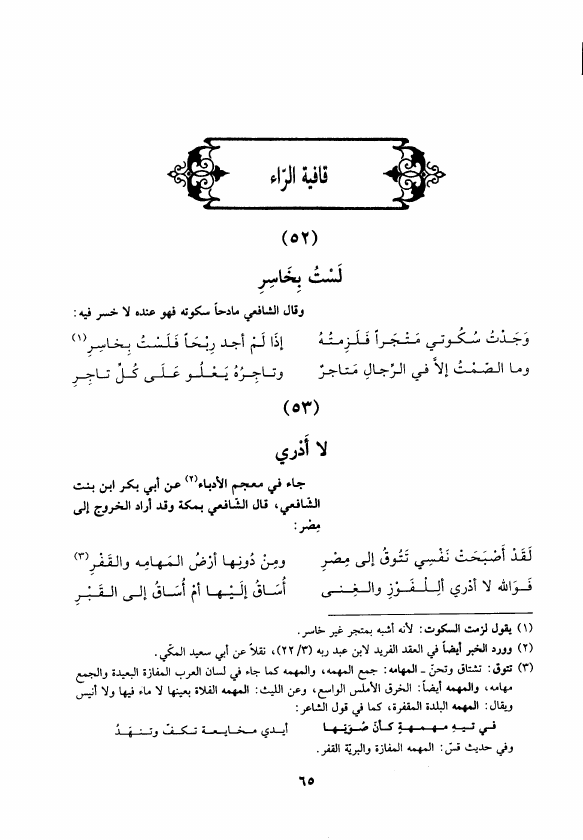 قافية الرّاء
(٥٢)
لَسْتُ بِخَاسِرِ
وقال الشافعي مادحاً سكوته فهو عنده لا خسر فيه:
وَجَدْتُ سُكُوتي مَتْجَراً فَلَزِمتُهُ إذَا لَمْ أجد رِبْحَاً فَلَسْتُ بِخاسِرِ(١)
وما الصّمْتُ إلاّ في الرّجالِ مَتاجرٌ وتاجِرُهُ يَعْلُو عَلَى كُلّ تاجِرِ
(٥٣)
لا أَدْري
جاء في معجم الأدباء(٢) عن أبي بكر ابن بنت
الشافعي، قال الشّافعي بمكة وقد أراد الخروج إلى
مِصْر:
لَقَدْ أصْبَحَتْ نَفْسِي تَتُوقُ إلى مِصْرِ ومِنْ دُونِها أرْضُ المَهامِه والقَفْرِ(٣)
فَوَالله لا أدْري أَلِلْفَوْزِ والغِنى أُسَاقُ إلَيْها أمْ أُسَاقُ إلى القَبْرِ
(١) يقول لزمت السكوت: لأنه أشبه بمتجر غير خاسر.
(٢) وورد الخبر أيضاً في العقد الفريد لابن عبد ربه (٢٢/٣)، نقلاً عن أبي سعيد المكّي.
(٣) تتوق: تشتاق وتحنّ ـ المهامه: جمع المهمه، والمهمه كما جاء في لسان العرب المفازة البعيدة والجمع
مهامه، والمهمه أيضاً: الخرق الأملس الواسع، وعن الليث: المهمه الفلاة بعينها لا ماء فيها ولا أنيس
ويقال: المهمه البلدة المقفرة، كما في قول الشاعر:
في تيه مهمهة كأنّ صُوَيّها أيدي مخالعة تكفّ وتنهَدُ
وفي حديث قسّ: المهمه المفازة والبريّة القفر.
٦٥